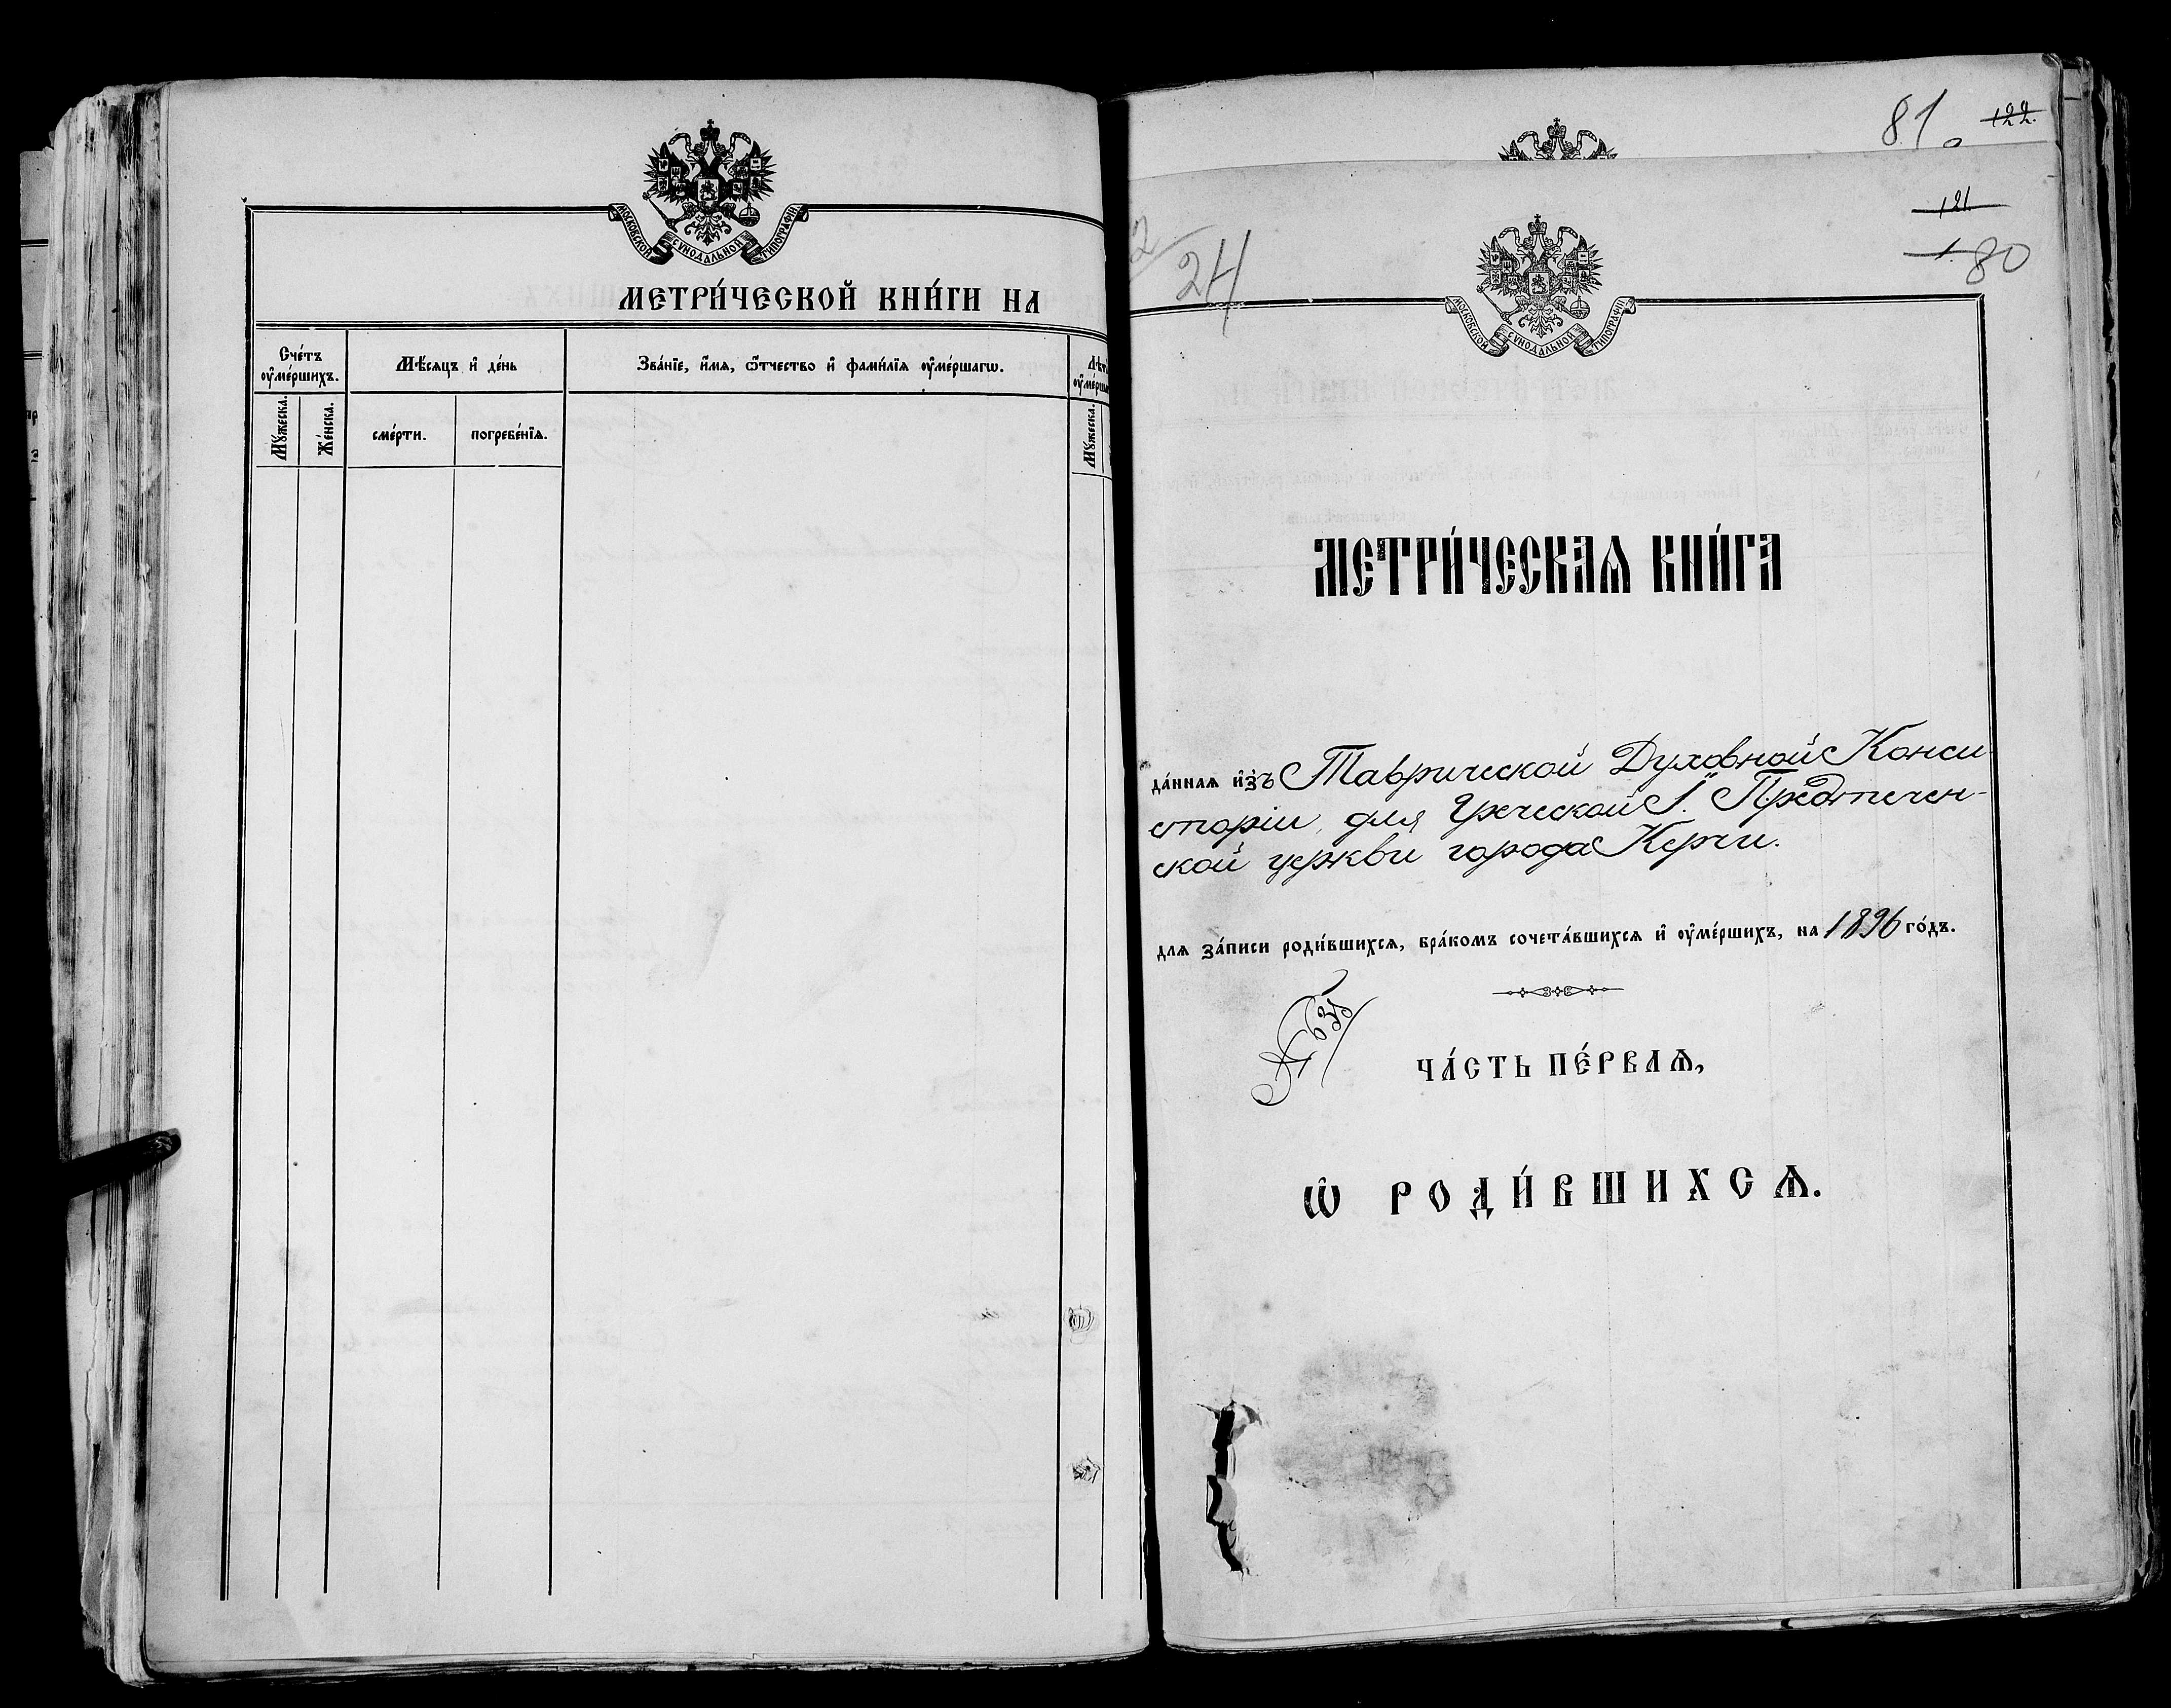 МОСКОВСКОЙ СѴНОДАЛЬНОЙ ТИПОГРАФІИ
МЕТРИ́ЧЕСКОЙ КНИ́ГИ НА
Сче́тъ оу҆ме́ршихъ.
Мѣ́сяцъ и҆ де́нь
Зва́нїе, и҆́мѧ, ѻ҆́тчество и҆ фами́лїѧ оу҆ме́ршагѡ.
Мꙋ́жеска.
Же́нска.
сме́рти.
погребе́нїѧ.
Мꙋ́жеска.
81
122.
121
80
24
МОСКОВСКОЙ СѴНОДАЛЬНОЙ ТИПОГРАФІИ
МЕТРИ́ЧЕСКАѦ КНИ́ГА
да́ннаѧ и҆з̾ъ Таврической Духовной Конси-
сторіи, для Греческой І. Предтечен-
ской церкви города Керчи.
длѧ за́писи роди́вшихсѧ, бра́комъ сочета́вшихсѧ и҆ оу҆ме́ршихъ, на 1896 го́дъ.
ЧА́СТЬ ПЕ́РВАѦ,
Ѡ҆ РОДИ́ВШИХСѦ.